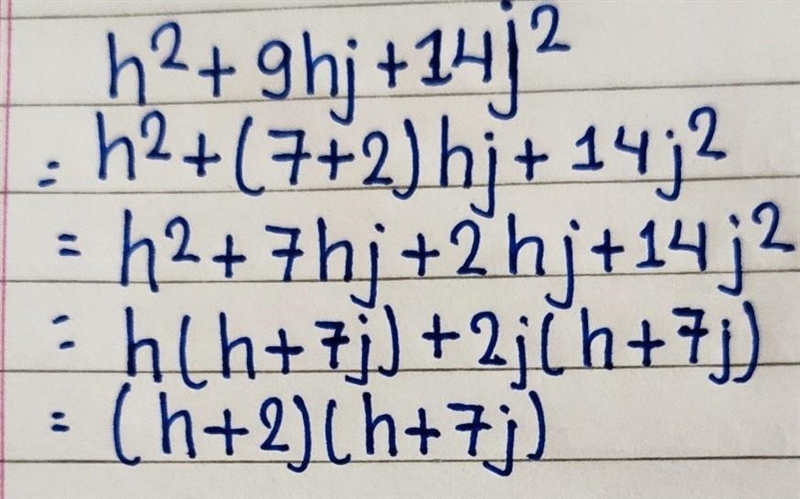 h² + 9hj + 14j²
= h² + (7+2)hj + 14j²
= h² + 7hj + 2hj + 14j²
= h(h+7j) + 2j(h+7j)
= (h+2)(h+7j)